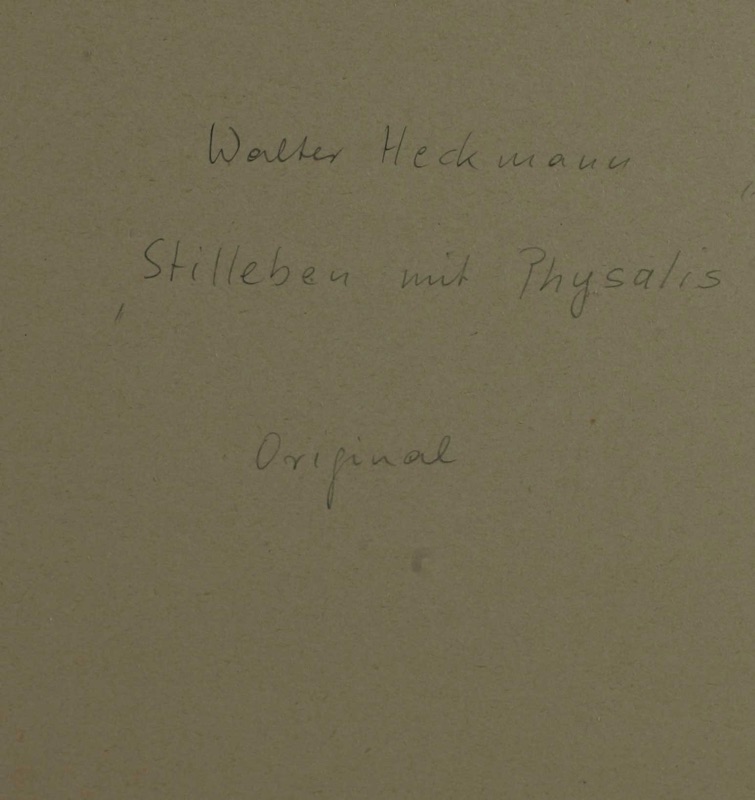 Walter Heckmann
"Stilleben mit Physalis"
Original